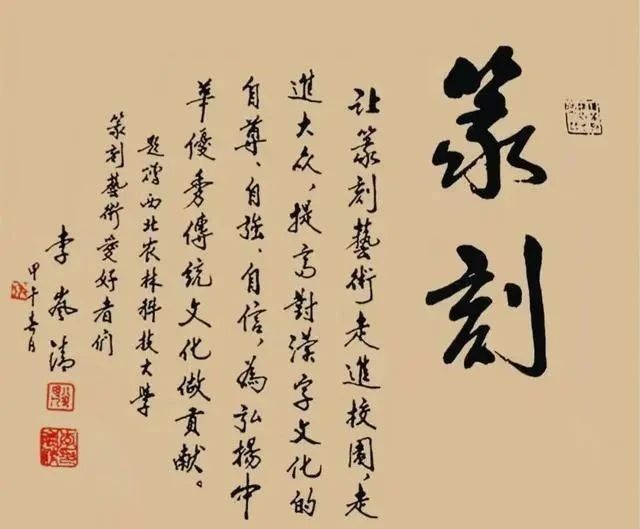 篆刻
让篆刻藝術走進校園，走
進大众，提高對漢字文化的
自尊、自強、自信，為弘揚中
華優秀傳統文化做貢献。
题赠西北农林科技大學
篆刻藝術愛好者們
李嵐清
甲午春日